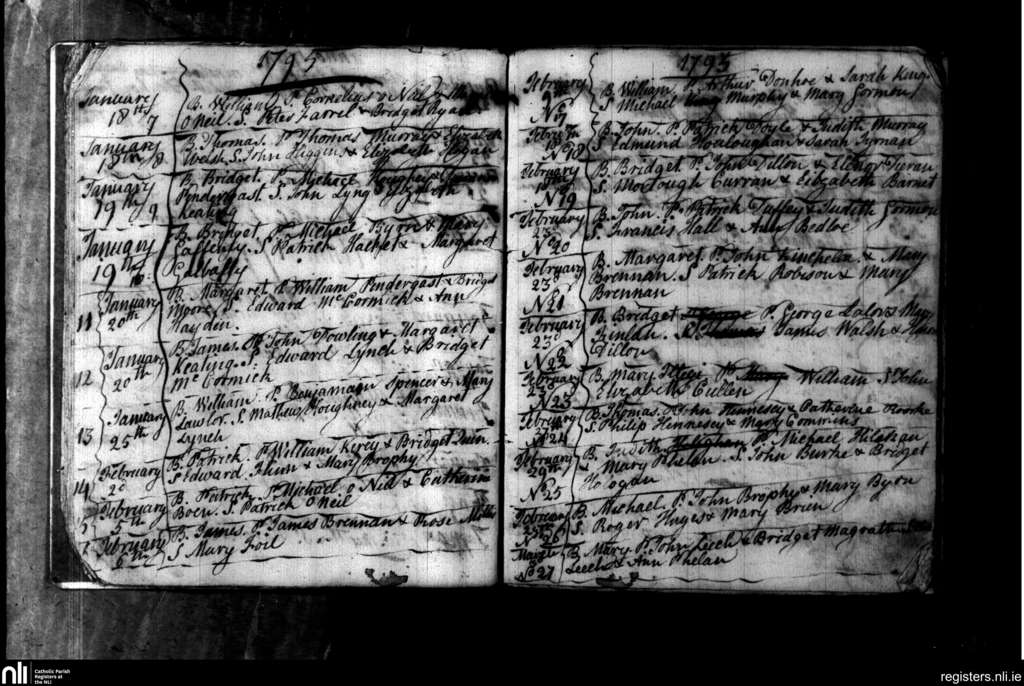 1795
January 18th 7
B. William P. Cornelius O Neil &
O'Neil. S. Peter Farrel & Bridget Ryan
January 18th 8
B. Thomas. P. Thomas Murray & Elizabeth
Welsh S. John Higgins & Elizabeth Hogan
January 19th 9
B. Bridget. P. Michael
Pendergast S. John Lyng & Elizabeth
Keating
January 19th 10
B. Bridget P. Michael Byrne & Mary
S. Patrick & Margaret
January 20th 11
B. Margaret P. William Pendergast & Bridget
Moore S. Edward McCormick & Ann
Hayden.
January 20th 12
B. James. P. John Dowling & Margaret
Keating. S. Edward Lynch & Bridget
McCormick
January 25th 13
B. William P. Benjamain Spencer & Mary
Lawlor. S. Mathew Houghney & Margaret
Lynch
February 2d 14
B. Patrick. P. William Kerey & Bridget Quin.
S Edward & Mary Brophy
February 5th
B. Patrick P. Michael O Neil & Catharin
S. Patrick O Neil
February 6th
B. James. P. James Brennan & Rose
S Mary Foil
1795
February No. 17
B. William P. Arthur Donhoe & Sarah King
S Michael Murphy & Mary Gormon
February No. 18
B. John. P. Patrick Doyle & Judith Murray
S Edmund & Sarah
February No 19
B. Bridget P. John Dillon & Elenor
S. Curran & Elizabeth Barnet
February 23d No 20
B. John. P. Patrick Duffey & Judith Gormon
S. Francis Hall & Ann Bedloe
February 23d No 21
B. Margaret P. John & Mary
Brennan. S Patrick Robison & Mary
Brennan
February 23d No 22
B. Bridget P. George Lalor & Mary
S. James Walsh &
Dillon
February 23d No 23
B. Mary P. William S John
Elizabeth Cullen
February No 24
B. Thomas. P. John Hennesey & Catherine Rourke
S. Philip Hennesey & Mary Commins
February No 25
B. Judith P. Michael
& Mary Phelan. S. John Burke & Bridget
February No 26
B. Michael. P. John Brophy & Mary Byrn
S. Roger Hayes & Mary Brien
March No 27
B. Mary P. John Leech & Bridget Magrath
Leech & Ann Phelan
nli
Catholic Parish
Registers at
the NLI
registers.nli.ie